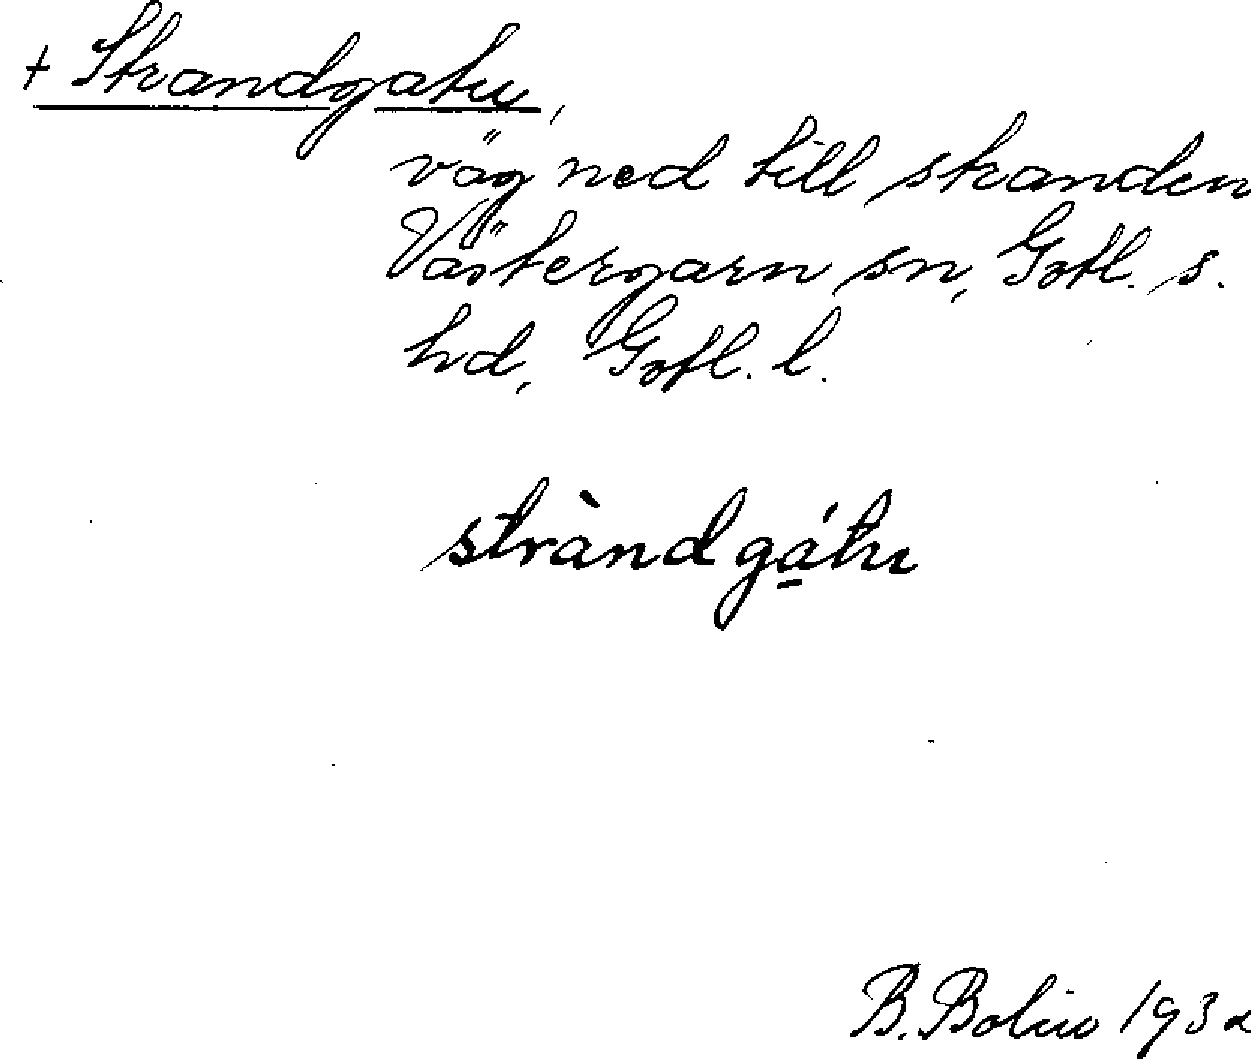 + Strandgatu,
väg ned till stranden
Västergarn sn, Gotl. s.
hd, Gotl. l.
stràndgá̱tu
B. Bolin 1932